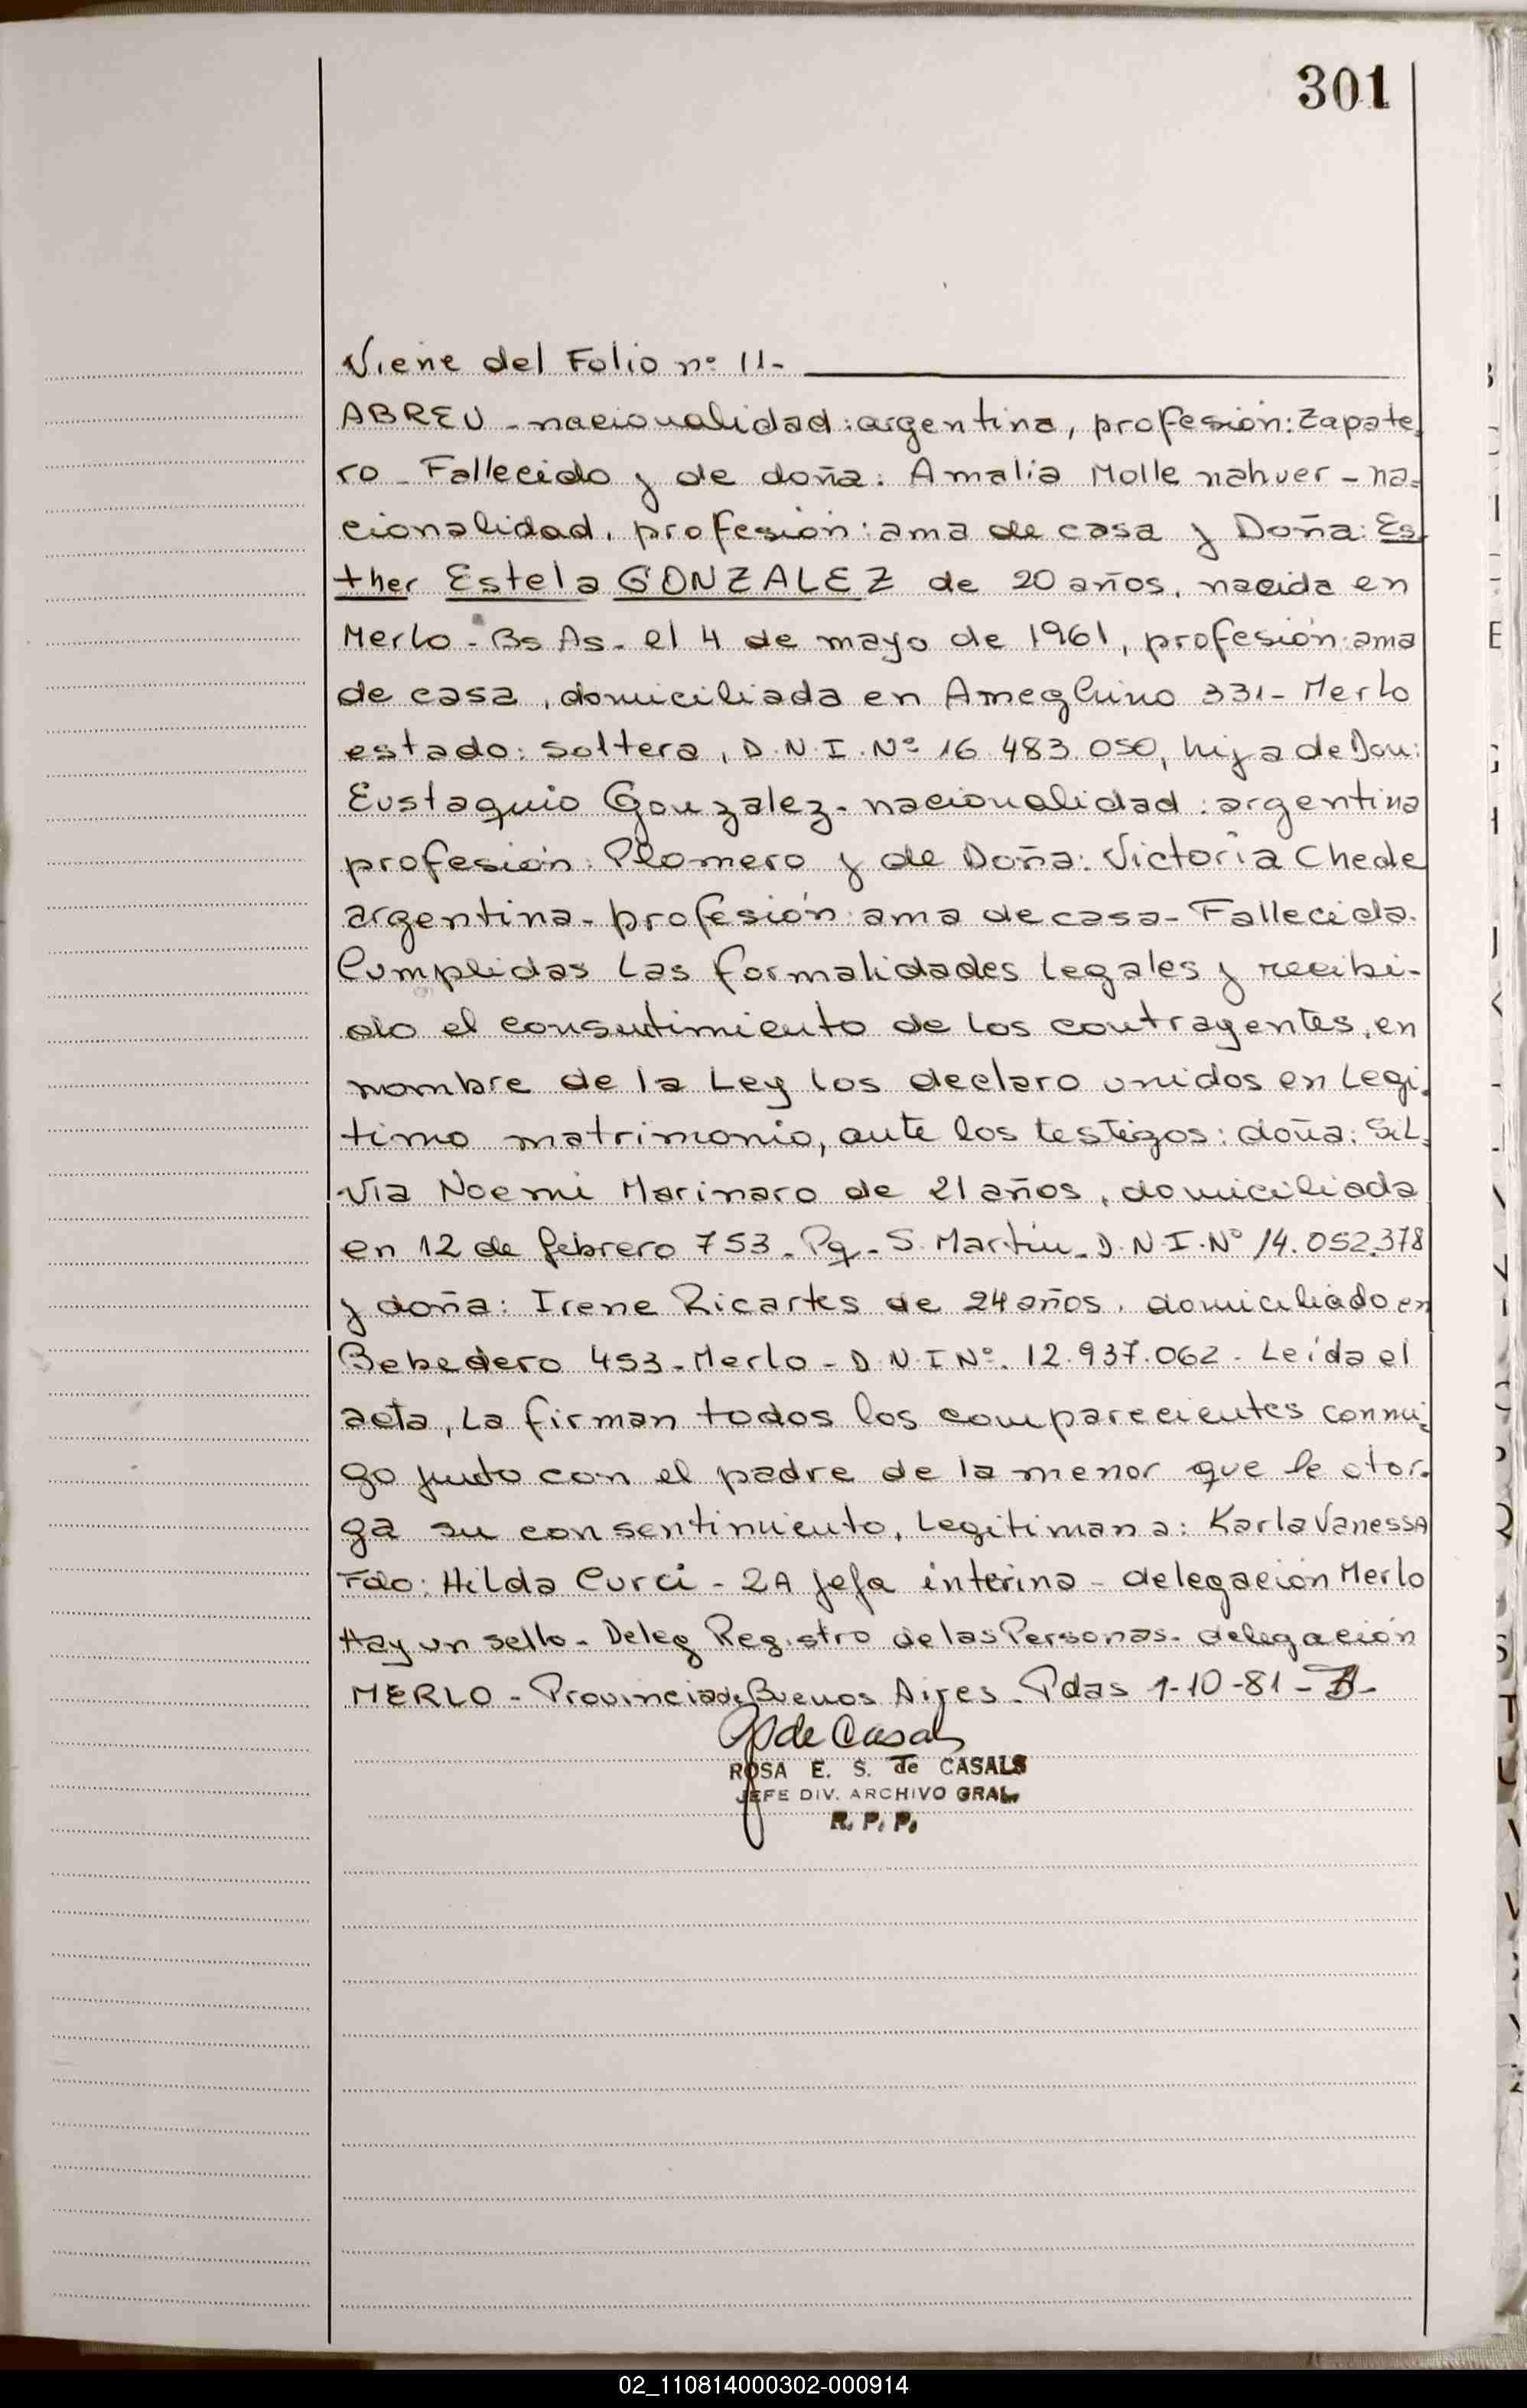 301
Viene del Folio nº 11-
ABREU - nacionalidad: argentina, profesión: Zapate-
ro - Fallecido y de doña: Amalia Molle nahuer - na-
cionalidad, profesión: ama de casa y Doña: Es-
ther Estela GONZALEZ de 20 años, nacida en
Merlo - Bs As - el 4 de mayo de 1961, profesión: ama
de casa, domiciliada en Ameghino 331 - Merlo
estado: soltera, D.N.I. Nº 16.483.050, hija de Don:
Eustaquio Gonzalez - nacionalidad: argentina
profesión: Plomero y de Doña: Victoria Chede
argentina - profesión: ama de casa - Fallecida.
Cumplidas las formalidades legales y recibi-
do el consentimiento de los contrayentes, en
nombre de la Ley los declaro unidos en Legi-
timo matrimonio, ante los testigos: doña: Sil-
via Noemi Marinaro de 21 años, domiciliada
en 12 de febrero 753 - Pq - S. Martin - D.N.I. Nº 14.052.378
y doña: Irene Ricartes de 24 años, domiciliado en
Bebedero 453 - Merlo - D.N.I Nº. 12.937.062 - Leída el
acta, la firman todos los comparecientes conmi-
go junto con el padre de la menor que le otor-
ga su consentimiento, Legitiman a: Karla Vanessa
Fdo: Hilda Curci - 2A jefa interina - delegación Merlo
Hay un sello - Deleg Registro de las Personas - delegación
MERLO - Provincia de Buenos Aires - Pdas 1-10-81 -
de Casals
ROSA E. S. de CASALS
JEFE DIV. ARCHIVO GRAL.
R. P. P.
02_110814000302-000914